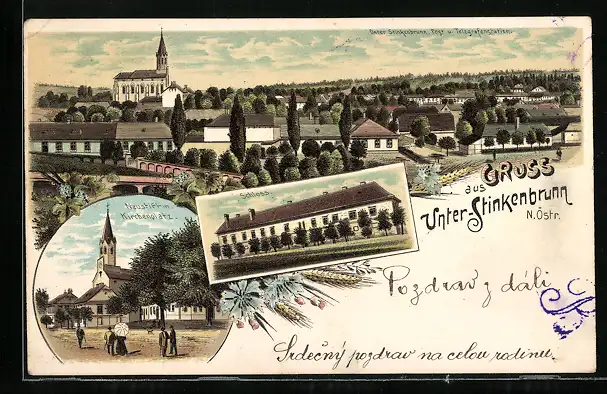 Unter Stinkenbrunn, Post u. Telegrafenstation.
Gruss
aus
Unter-Stinkenbrunn
N. Östr.
Schloss.
Neustift m.
Kirchenplatz.
Pozdrav z dáli
Srdečný pozdrav na celou rodinu.